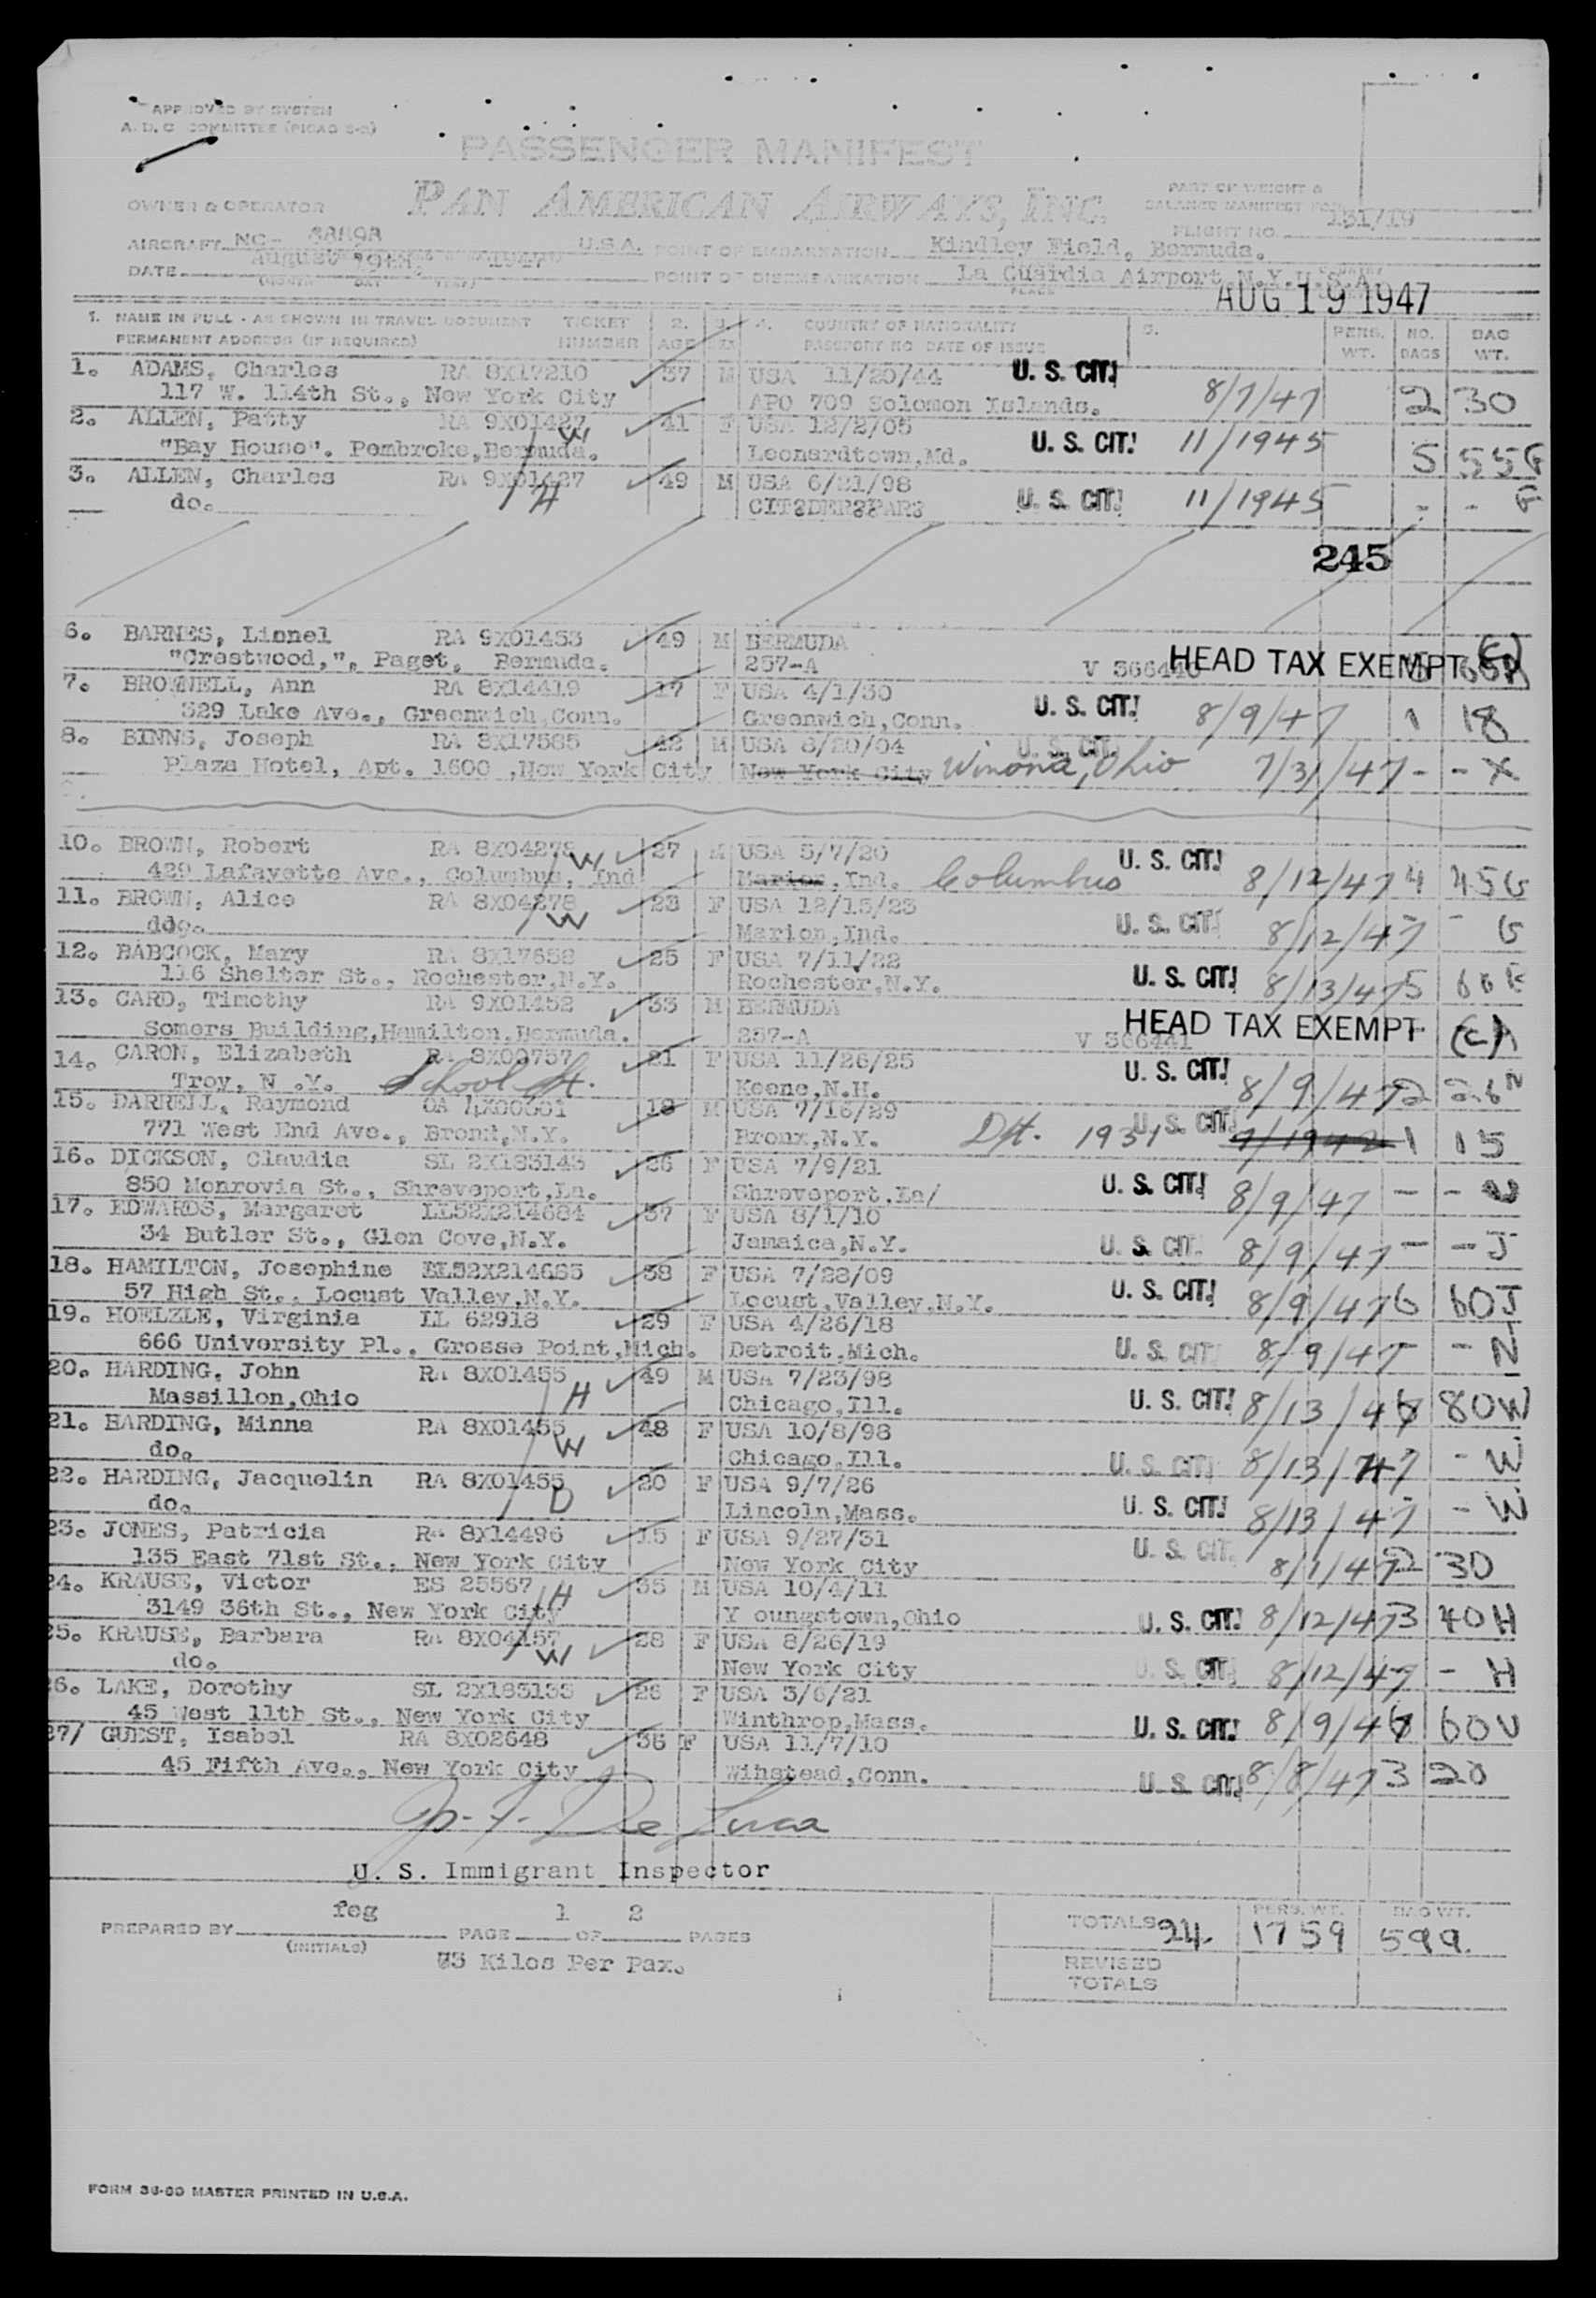 APPROVED BY SYSTEM
A.D.C COMMITTEE (PICAO S-2)
PASSENGER MANIFEST
PAN AMERICAN AIRWAYS, INC.
PART OF WEIGHT &
BALANCE MANIFEST FOR
OWNER & OPERATOR
FLIGHT NO. 131/19
AIRCRAFT NC- 88898 U.S.A. POINT OF EMBARKATION Kindley Field, Bermuda.
DATE August 19th, 1947 POINT OF DISEMBARKATION La Guardia Airport, N.Y. U.S.A.
(MONTH DAY YEAR) PLACE COUNTRY
AUG 19 1947
1. NAME IN FULL - AS SHOWN IN TRAVEL DOCUMENT TICKET 2. 3. 4. COUNTRY OF NATIONALITY 5. PERS. NO. BAG
PERMANENT ADDRESS (IF REQUIRED) NUMBER AGE PASSPORT NO DATE OF ISSUE WT. BAGS WT.
1. ADAMS, Charles RA 8X17210 37 M USA 11/20/44 U. S. CIT.
117 W. 114th St., New York City APO 709 Solomon Islands. 8/7/47 2 30
2. ALLEN, Patty RA 9X01427 W 41 F USA 12/2/05
"Bay House". Pembroke, Bermuda. Leonardtown, Md. U. S. CIT. 11/1945 5 55G
3. ALLEN, Charles RA 9X01427 H 49 M USA 6/21/98
do. CIT?DER??PAR? U. S. CIT. 11/1945 - - G
245
6. BARNES, Lionel RA 9X01453 49 M BERMUDA
"Crestwood,", Paget, Bermuda. 257-A V 366440 HEAD TAX EXEMPT
7. BROWNELL, Ann RA 8X14419 17 F USA 4/1/30
329 Lake Ave., Greenwich, Conn. Greenwich, Conn. U. S. CIT. 8/9/47 1 18
8. BINNS, Joseph RA 8X17585 42 M USA 8/20/04 U. S. CIT.
Plaza Hotel, Apt. 1600 , New York City New York City Winona, Ohio 7/31/47 - - X
10. BROWN, Robert RA 8X04278 W 27 M USA 5/7/20 U. S. CIT.
429 Lafayette Ave., Columbus, Ind Marion, Ind. Columbus 8/12/47 4 45G
11. BROWN, Alice RA 8X04278 W 23 F USA 12/15/23
ddo. Marion, Ind. U. S. CIT. 8/12/47 - G
12. BABCOCK, Mary RA 8X17658 25 F USA 7/11/22
116 Shelter St., Rochester, N.Y. Rochester, N.Y. U. S. CIT. 8/13/47 5
13. CARD, Timothy RA 9X01452 33 M BERMUDA
Somers Building, Hamilton, Bermuda. 257-A V 366441 HEAD TAX EXEMPT
14. CARON, Elizabeth RA 8X00757 21 F USA 11/26/25 U. S. CIT.
Troy, N .Y. School St. Keene, N.H. 8/9/47 2 26N
15. DARRELL, Raymond OA 4X00601 18 M USA 7/16/29 U. S. CIT.
771 West End Ave., Bronx, N.Y. Bronx, N.Y. 1931 7/1942 1 15
16. DICKSON, Claudia SL 2X183143 26 F USA 7/9/21
850 Monrovia St., Shreveport, La. Shreveport, La/ U. S. CIT. 8/9/47 - -
17. EDWARDS, Margaret LL52X214684 37 F USA 8/1/10
34 Butler St., Glen Cove, N.Y. Jamaica, N.Y. U. S. CIT. 8/9/47 - - J
18. HAMILTON, Josephine LL52X214685 38 F USA 7/28/09
57 High St., Locust Valley, N.Y. Locust, Valley, N.Y. U. S. CIT. 8/9/47 6 60J
19. HOELZLE, Virginia LL 62918 29 F USA 4/26/18
666 University Pl., Grosse Point, Mich. Detroit, Mich. U. S. CIT. 8/9/47 - N
20. HARDING, John RA 8X01455 H 49 M USA 7/23/98
Massillon, Ohio Chicago, Ill. U. S. CIT. 8/13/47 80W
21. HARDING, Minna RA 8X01455 W 48 F USA 10/8/98
do. Chicago, Ill. U. S. CIT. 8/13/47 - W
22. HARDING, Jacquelin RA 8X01455 D 20 F USA 9/7/26
do. Lincoln, Mass. U. S. CIT. 8/13/47 - W
23. JONES, Patricia RA 8X14496 15 F USA 9/27/31
135 East 71st St., New York City New York City U. S. CIT. 8/1/47 2 30
24. KRAUSE, Victor ES 25567 H 35 M USA 10/4/11
3149 36th St., New York City Y oungstown, Ohio U. S. CIT. 8/12/47 3 40H
25. KRAUSE, Barbara RA 8X04157 W 28 F USA 8/26/19
do. New York City U. S. CIT. 8/12/47 - H
26. LAKE, Dorothy SL 2X183133 26 F USA 3/6/21
45 West 11th St., New York City Winthrop, Mass. U. S. CIT. 8/9/47 60U
27/ GUEST, Isabel RA 8X02648 36 F USA 11/7/10
45 Fifth Ave., New York City Wihstead, Conn. U. S. CIT. 8/8/47 3 20
De Luca
U. S. Immigrant Inspector
PREPARED BY feg PAGE 1 OF 2 PAGES
(INITIALS)
TOTALS 24. PERS. WT. 1759 BAG WT. 599.
REVISED
TOTALS
Kilos Per Pax.
FORM 36-60 MASTER PRINTED IN U.S.A.